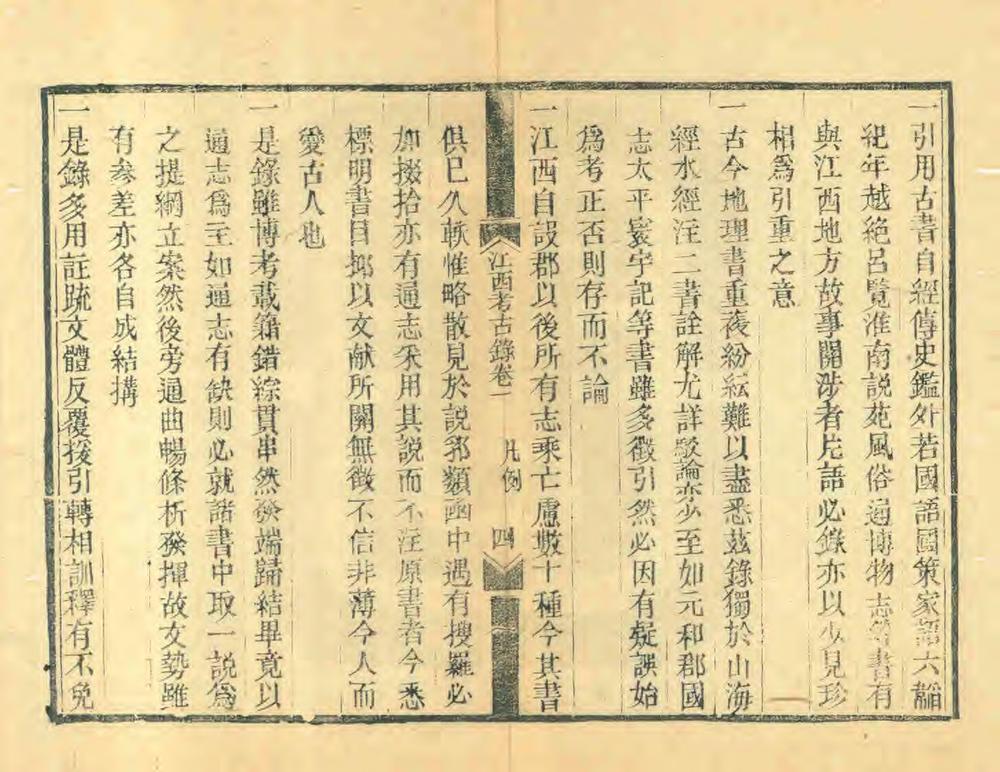 一引用古書自經傳史鑑外若國語國策家語六韜
紀年越絶呂覽淮南説苑風俗通博物志等書有
與江西地方故事關涉者片語必錄亦以少見珍
相爲引重之意
一古今地理書重複紛紜難以盡悉茲錄獨於山海
經水經注二書詮解尤詳駁論亦少至如元和郡國
志太平寰宇記等書雖多徵引然必因有疑誤始
爲考正否則存而不論
一江西自設郡以後所有志乘亡慮數十種今其書
江西考古錄卷一
凡例
四
俱已久軼惟略散見於説郛類函中遇有搜羅必
加掇拾亦有通志采用其説而不注原書者今悉
標明書目抑以文献所關無徵不信非薄今人而
愛古人也
一是錄雖博考載籍錯綜貫串然發端歸結畢竟以
通志爲主如通志有缺則必就諸書中取一説爲
之提綱立案然後旁通曲暢條析發揮故文勢雖
有參差亦各自成結搆
一是錄多用註疏文體反覆援引轉相訓釋有不免